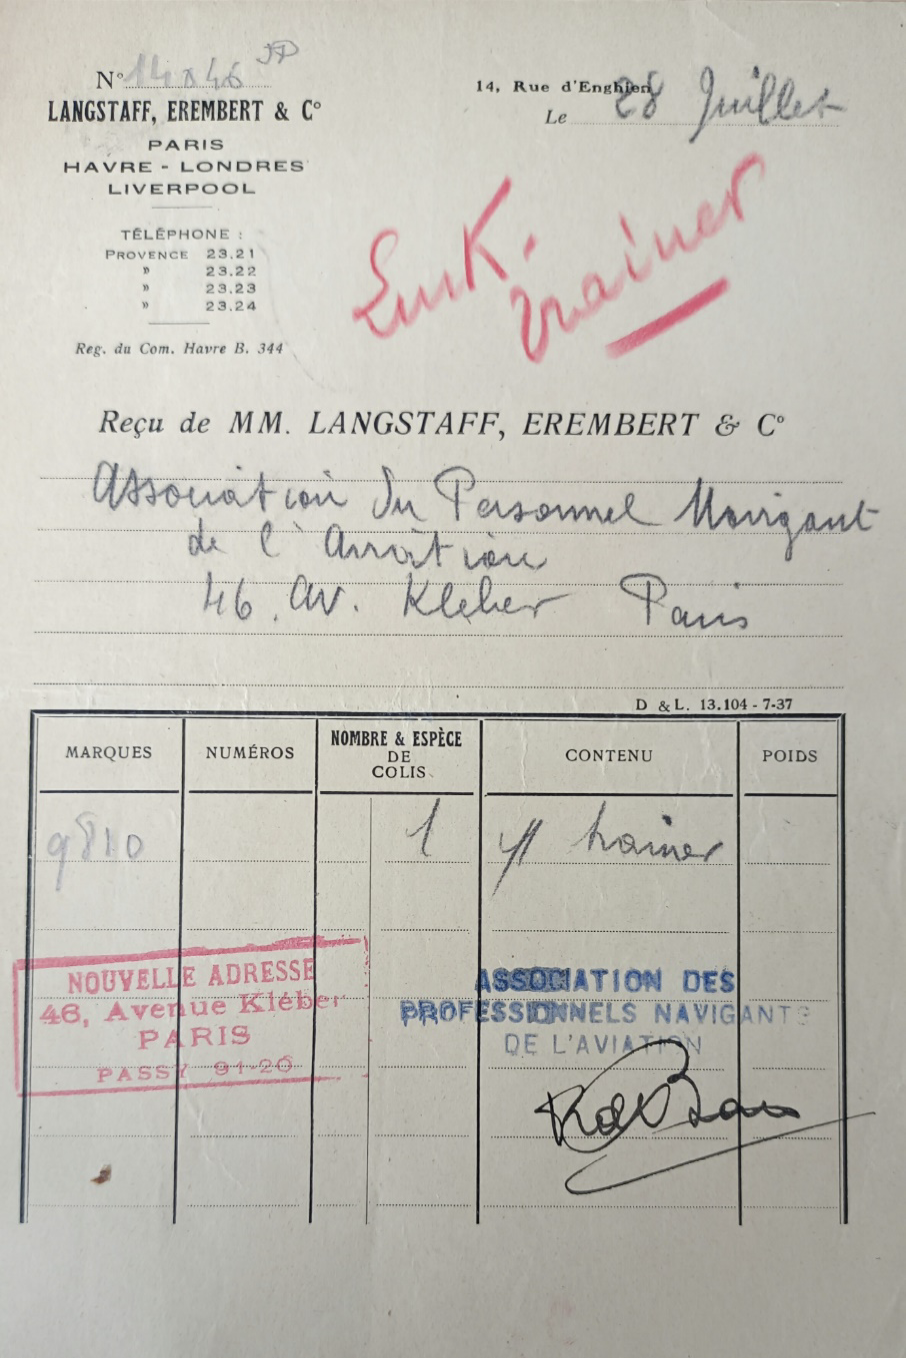 N° 14 846 JP
LANGSTAFF, EREMBERT & C°
PARIS
HAVRE - LONDRES
LIVERPOOL
TÉLÉPHONE :
PROVENCE 23.21
» 23.22
» 23.23
» 23.24
Reg. du Com. Havre B. 344
14, Rue d'Enghien
Le 28 Juillet
Link.
trainer
Reçu de MM. LANGSTAFF, EREMBERT & C°
Association du Personnel Navigant
de l'Aviation
46, av. Kleber Paris
D & L. 13.104 - 7-37
MARQUES NUMÉROS NOMBRE & ESPÈCE DE COLIS CONTENU POIDS
9810 1 trainer
NOUVELLE ADRESSE
46, Avenue Kléber
PARIS
PASSY 91-20
ASSOCIATION DES
PROFESSIONNELS NAVIGANTS
DE L'AVIATION